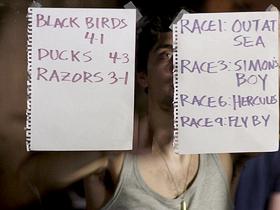 BLACK BIRDS
4-1
DUCKS 4-3
RAZORS 3-1
RACE1: OUTAT
SEA
RACE3: SIMONS
BOY
RACE6: HERCULES
RACE9: FLY BY